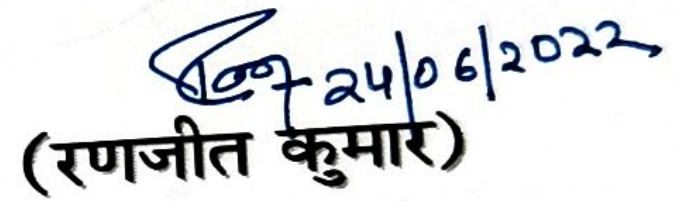 24/06/2022
(रणजीत कुमार)